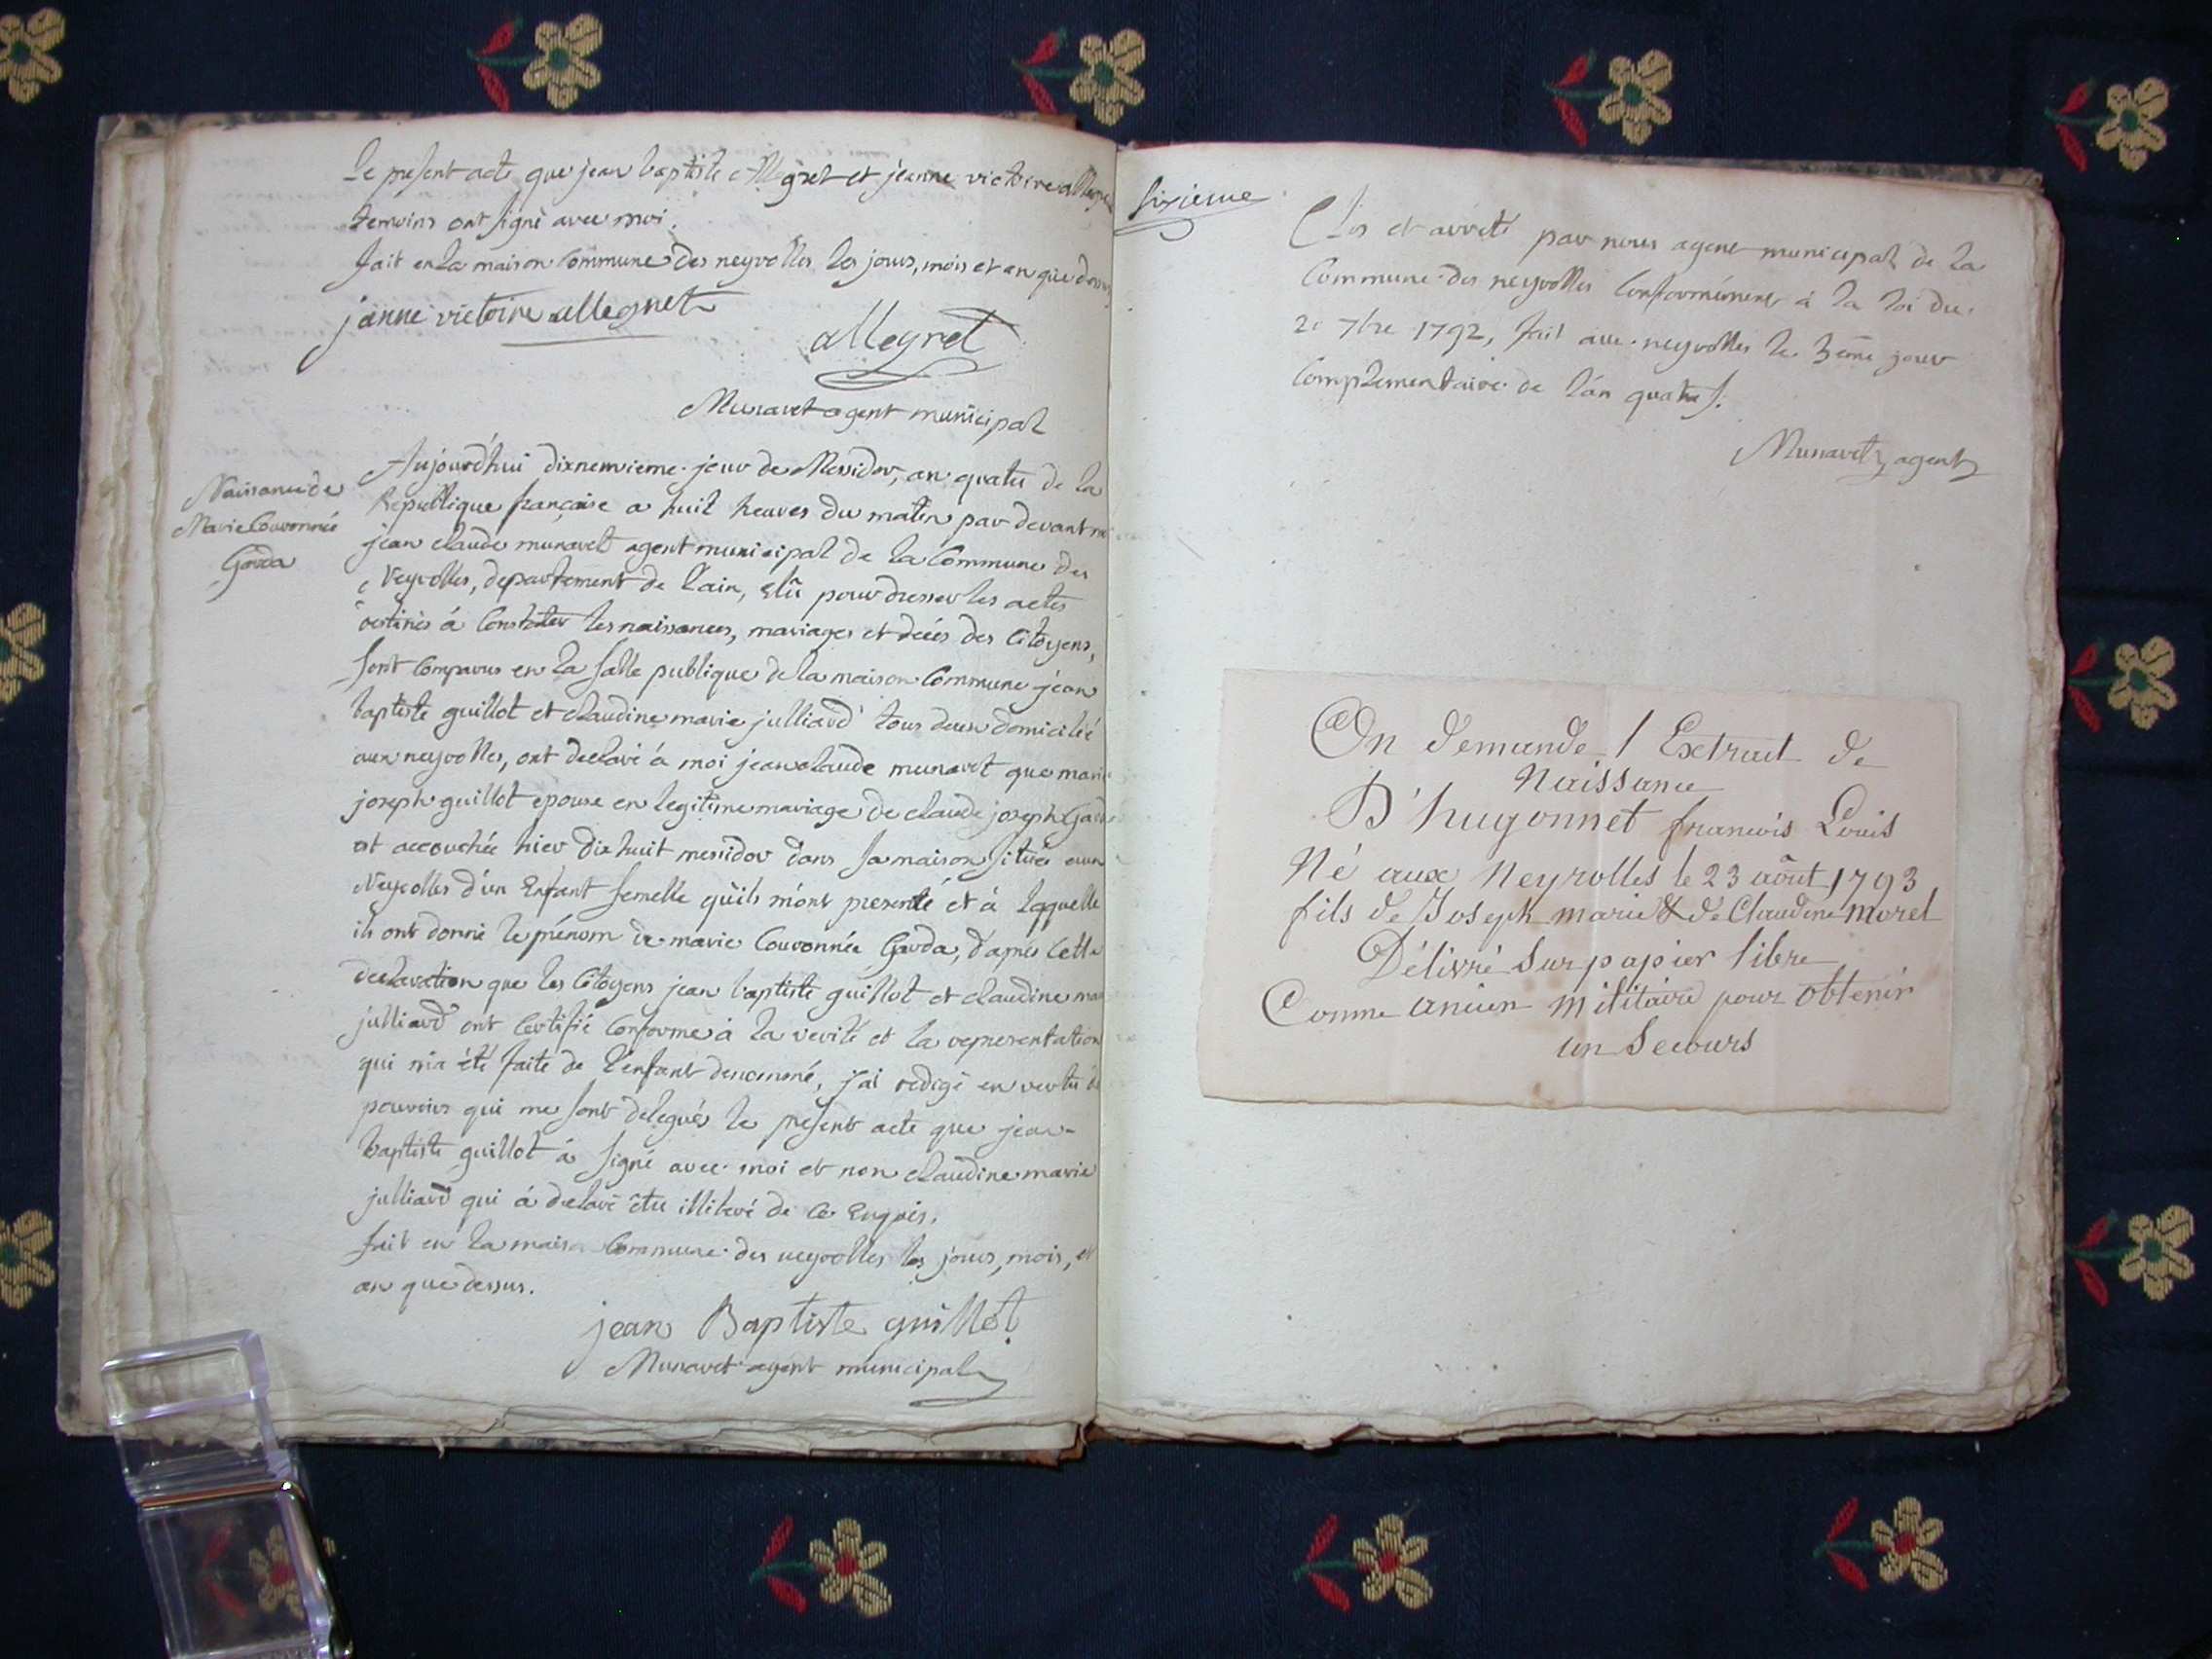 Le présent acte que jean baptiste Allegret et jeanne victoire allegret
temoins ont signé avec moi.
fait en la maison Commune des neyrolles les jours, mois et an que dessus
janne victoire allegret
allegret
Munavet agent municipal
Naissance de
Marie Couronnée
Garda
Aujourd'hui dixneuvieme jour de Messidor, an quatre de la
Republique française a huit heures du matin par devant moi
jean claude munavet agent municipal de la Commune des
Neyrolles, departement de l'ain, elû pour dresser les actes
destinés á Constater les naissances, mariages et decés des Citoyens,
sont Comparus en la salle publique de la maison Commune jean
baptiste guillot et claudine marie julliard tous deux domicilié
aux neyrolles, ont declaré á moi jean claude munavet que marie
joseph guillot epouse en legitime mariage de claude joseph Garda
est accouchée hier dix huit messidor dans sa maison située aux
Neyrolles d'un Enfant femelle qu'ils m'ont presenté et á laquelle
ils ont donné le prénom de marie Couronnée Garda, d'aprés Cette
declaration que les Citoyens jean baptiste guillot et claudine marie
julliard ont Certifié Conforme à la verité et la representation
qui m'a été faite de l'enfant denommé, j'ai redigé en vertu des
pouvoirs qui me sont delegués le présent acte que jean-
baptiste guillot á signé avec moi et non claudine marie
julliard qui á declaré être illiteré de Ce Enquis.
fait en la maison Commune des neyrolles les jours, mois, et
an que dessus.
jean Baptiste guillot
Munavet agent municipal
sixieme
Clos et arrêté par nous agent municipal de la
Commune des neyrolles Conformément á la loi du
20 7bre 1792, fait aux neyrolles le 3eme jour
Complementaire de l'an quatre.
Munavet agent
On demande 1 Extrait de
Naissance
D'hugonnet francois Louis
Né aux Neyrolles le 23 aôut 1793
fils de Joseph marie & de Claudine morel
Délivré sur papier libre
Comme ancien militaire pour obtenir
un Secours